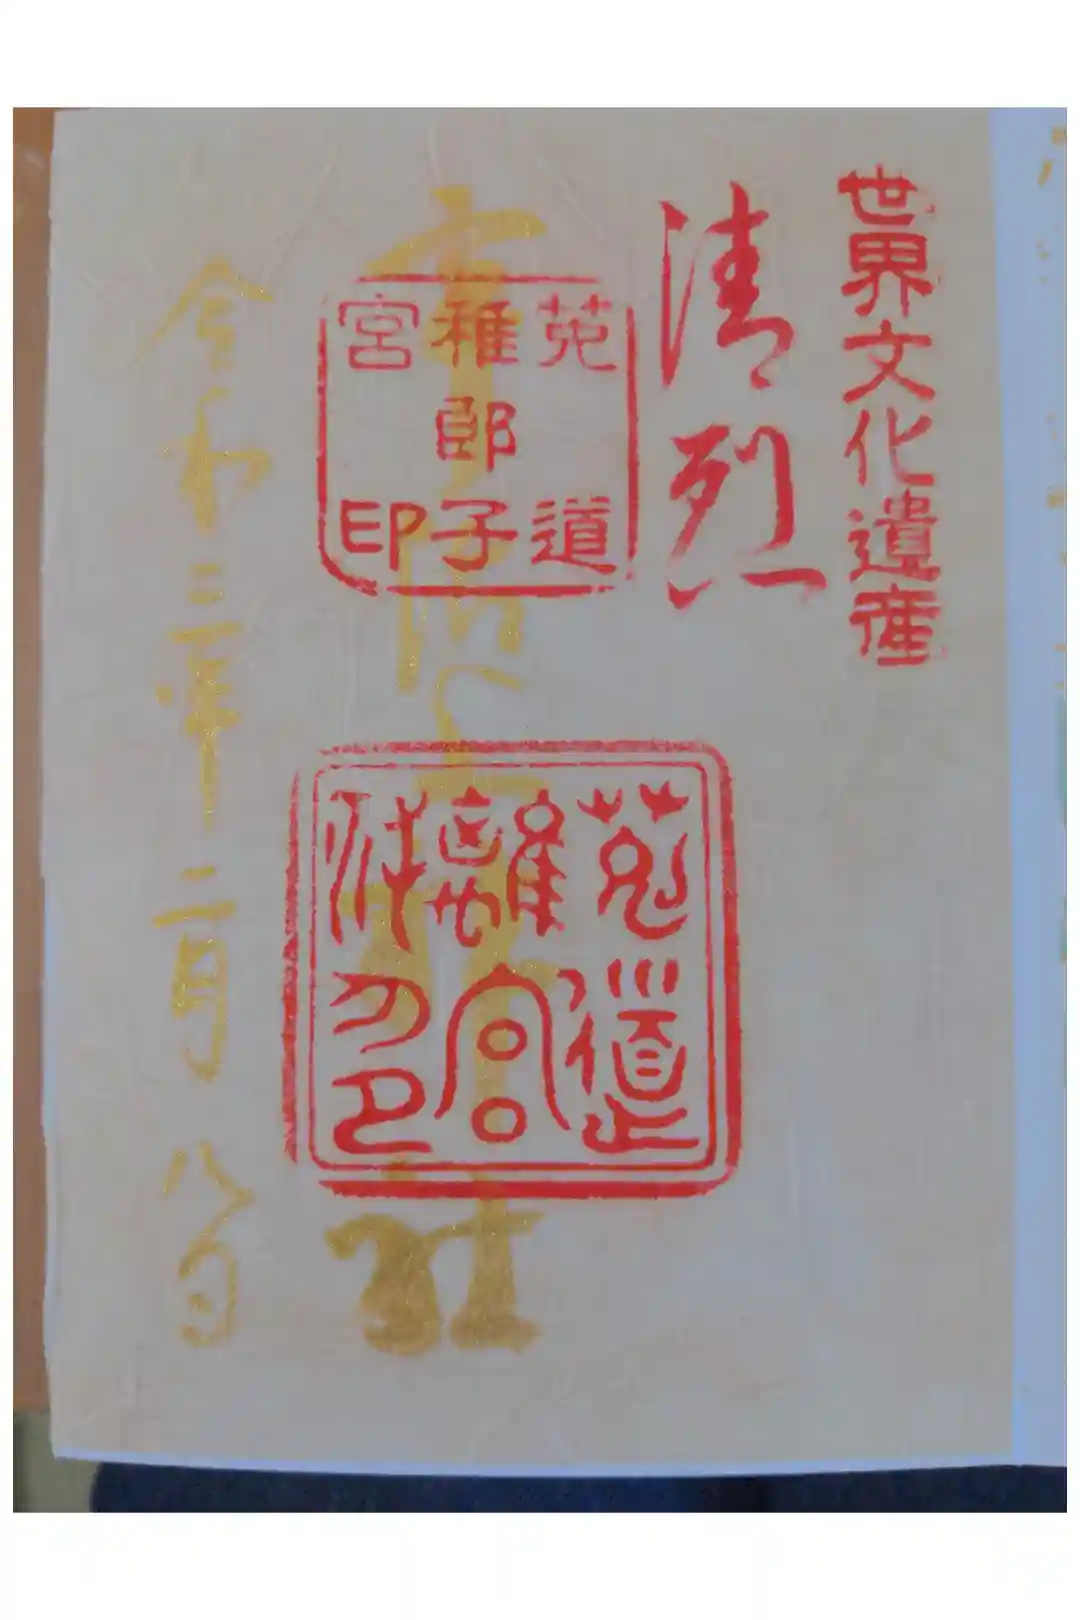 世界文化遺産
清烈
菟道
稚郎子
宮印
菟道
離宮
宇治上神社
令和三年二月八日